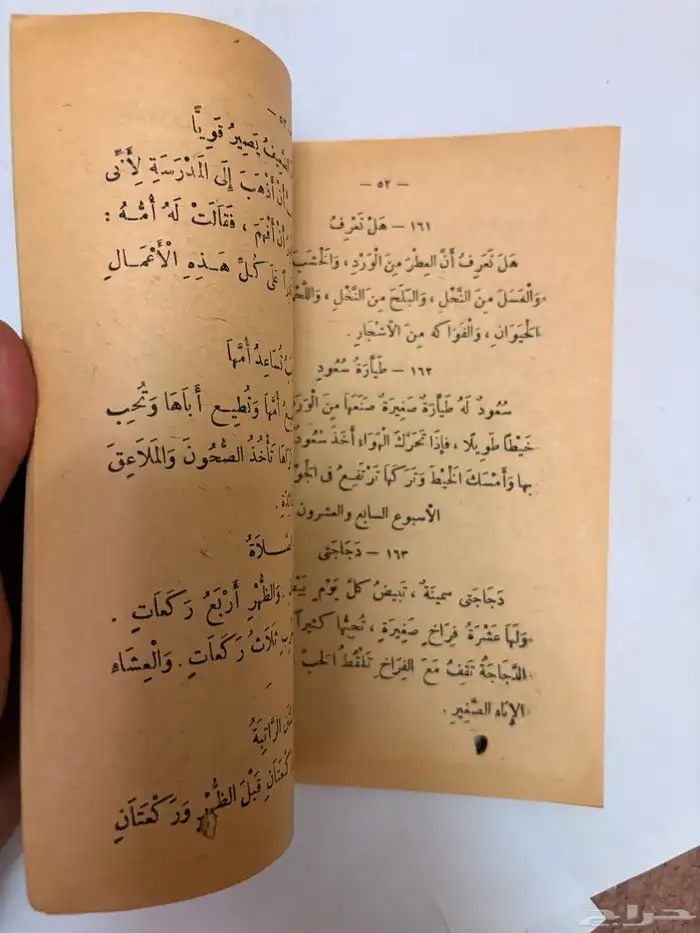 — ٥٢ —
١٦١ — هَلْ تَعْرِفُ
هَلْ تَعْرِفُ أَنَّ العِطْرَ مِنَ الْوَرْدِ ، وَالْخَشَبَ
وَالْعَسَلَ مِنَ النَّحْلِ ، وَالبَلَحَ مِنَ النَّخْلِ ،
الْحَيَوَانِ ، وَالْفَوَاكِهَ مِنَ الْأَشْجَارِ .
١٦٢ — طَيَّارَةُ سُعُودٍ
سُعُودٌ لَهُ طَيَّارَةٌ صَغِيرَةٌ صَنَعَهَا مِنَ
خَيْطًا طَوِيلًا ، فَإِذَا تَحَرَّكَ الْهَوَاءُ أَخَذَ سُعُودٌ
بِهَا وَأَمْسَكَ الْخَيْطَ وَتَرَكَهَا تَرْتَفِعُ فِى الْجَوِّ
الأسبوع السابع والعشرون
١٦٣ — دَجَاجَتِى
دَجَاجَتِى سَمِينَةٌ ، تَبِيضُ كُلَّ يَوْمٍ
وَلَهَا عَشْرَةُ فِرَاخٍ صَغِيرَةٍ ، تُحِبُّهَا كَثِيراً
الدَّجَاجَةُ تَقِفُ مَعَ الْفِرَاخِ تَلْقُطُ الْحَبَّ
الْإِنَاءِ الصَّغِيرِ .
يَصِيرُ قَوِيًّا
أَنْ أَذْهَبَ إِلَى الْمَدْرَسَةِ لِأَنِّى
أَنْ أَفْهَمَ ، فَقَالَتْ لَهُ أُمُّهُ :
عَلَى كُلِّ هَذِهِ الْأَعْمَالِ
تُسَاعِدُ أُمَّهَا
أُمَّهَا وَتُطِيعُ أَبَاهَا وَتُحِبُّ
تَأْخُذُ الصُّحُونَ وَالْمَلَاعِقَ
وَالظُّهْرِ أَرْبَعُ رَكَعَاتٍ .
ثَلَاثُ رَكَعَاتٍ . وَالْعِشَاءِ
الرَّاتِبَةُ
رَكْعَتَانِ قَبْلَ الظُّهْرِ وَرَكْعَتَانِ
حراج